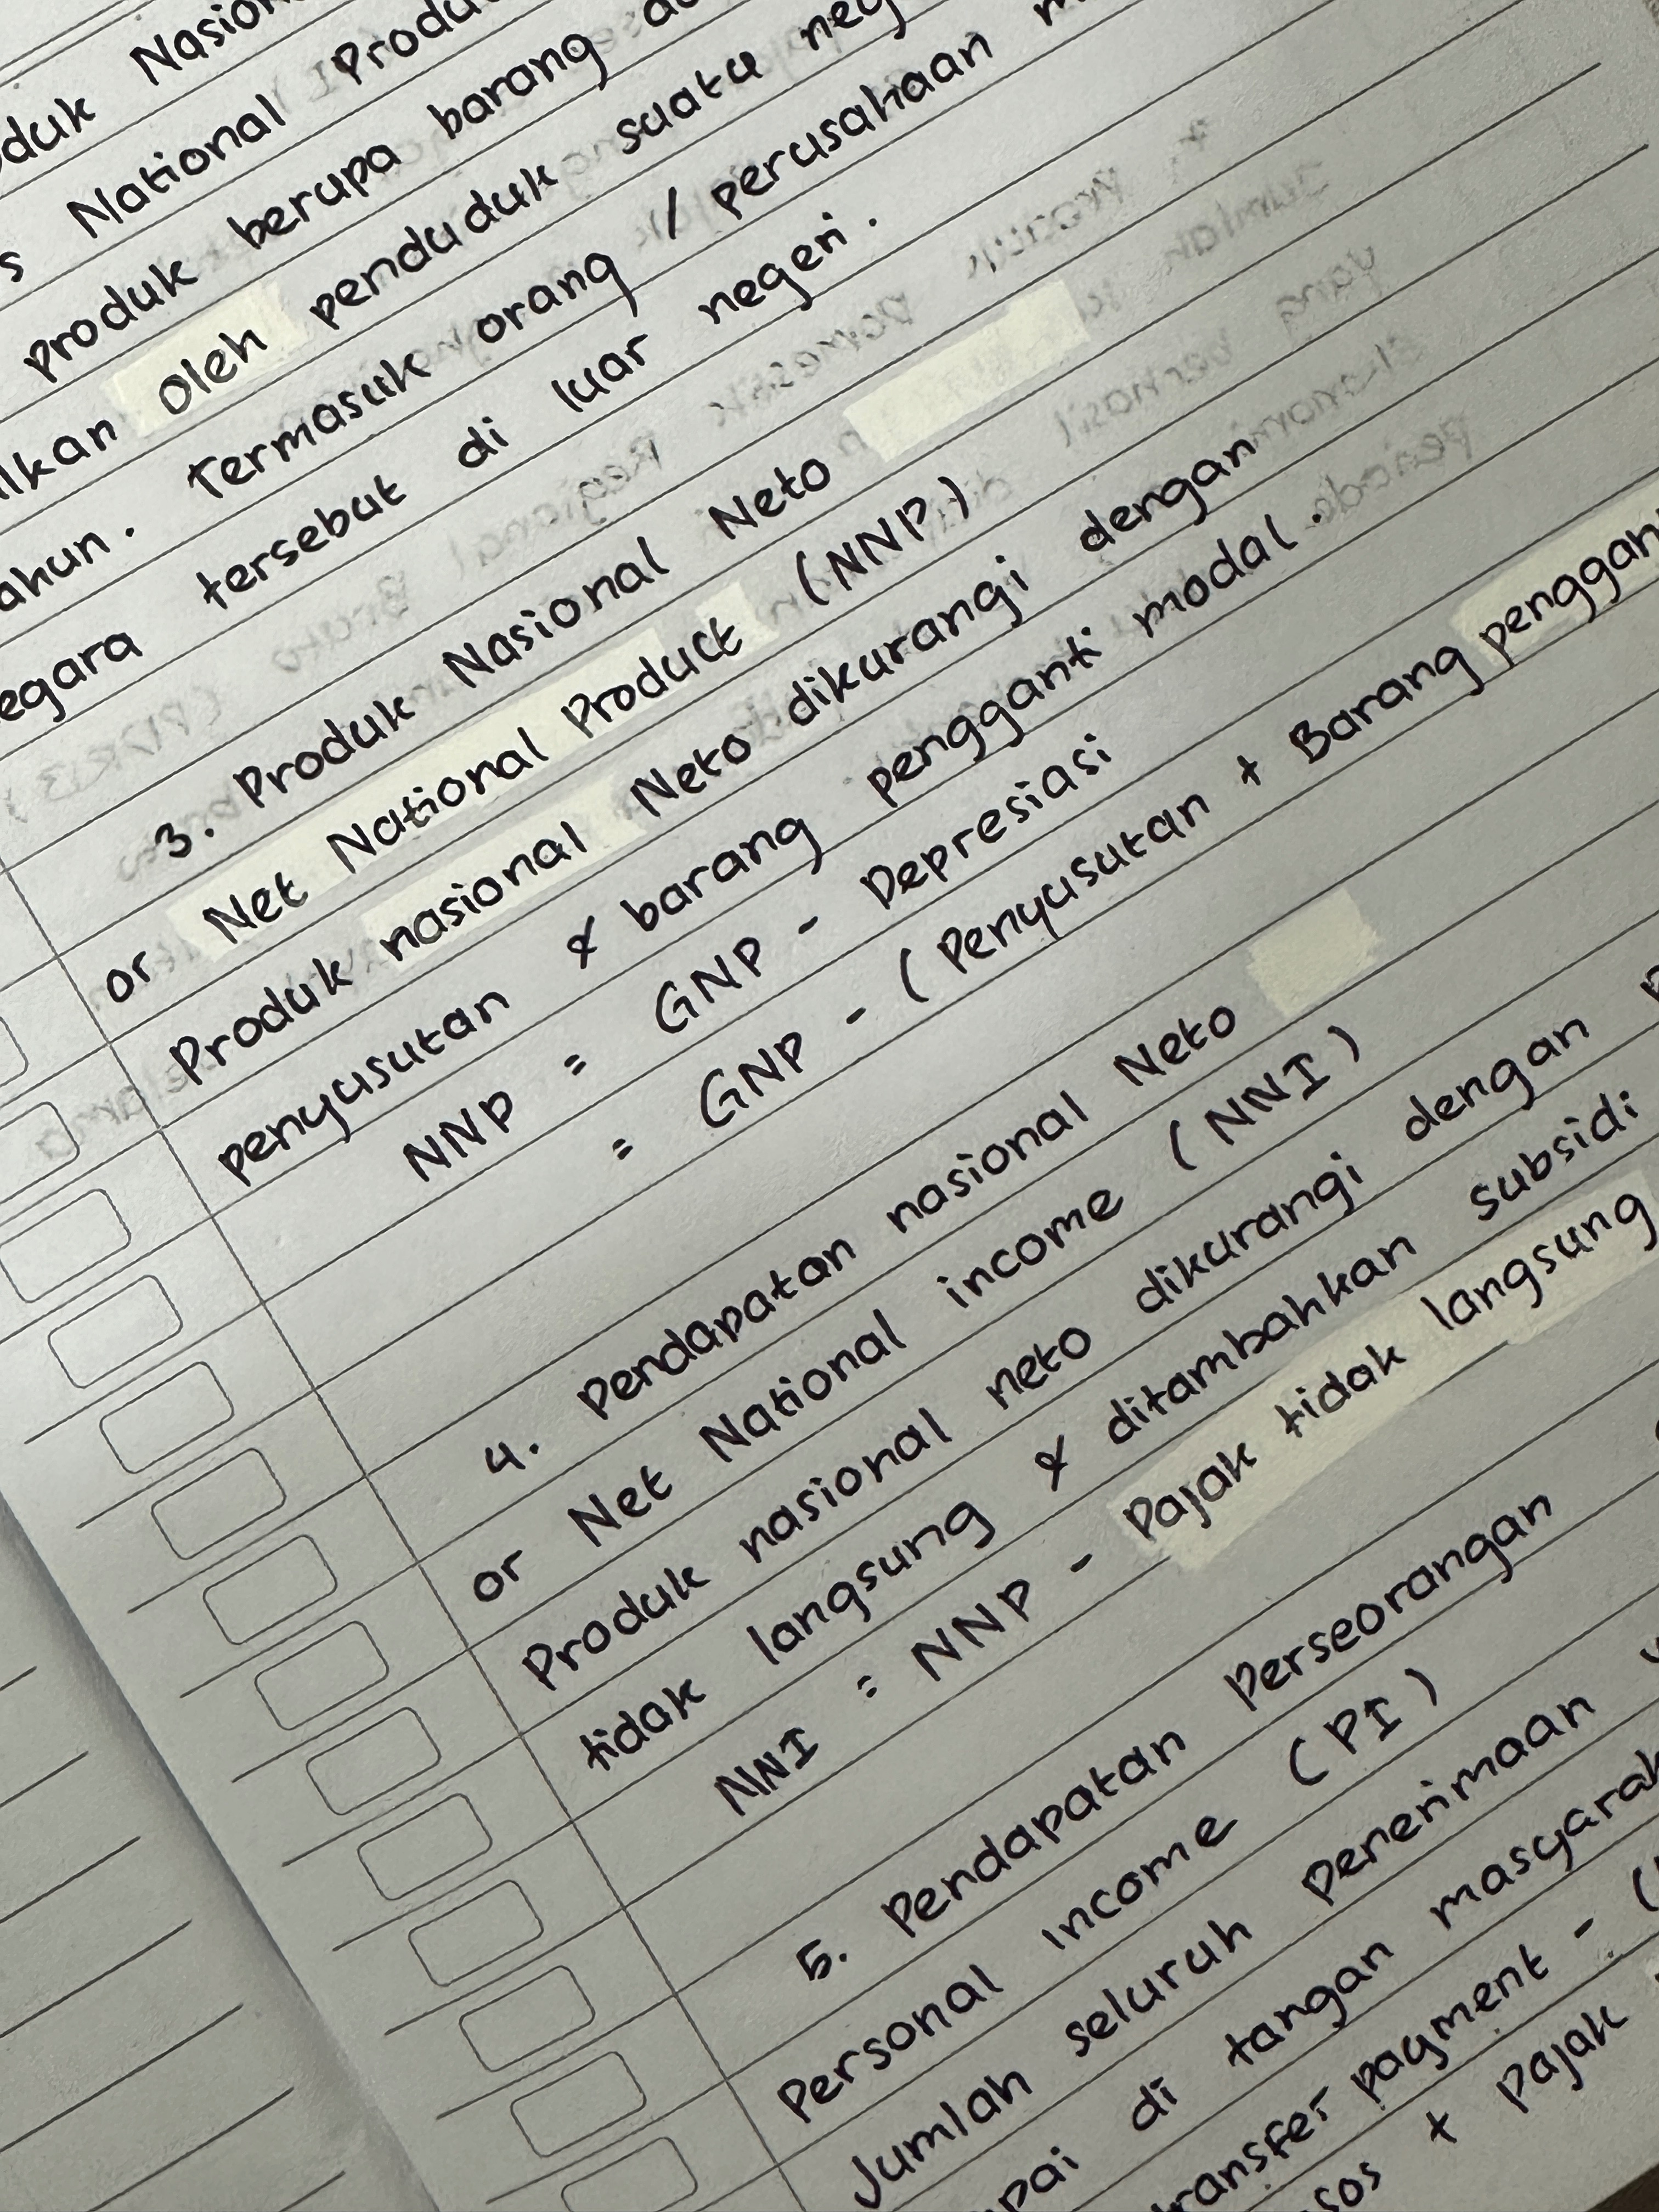 Produk
National
produk berupa barang
oleh penduduk suatu
Termasuk orang / perusahaan
tersebut di luar negeri.
3. Produk Nasional Neto
or Net National Product (NNP)
Produk nasional Neto dikurangi dengan
penyusutan & barang pengganti modal.
NNP = GNP - Depresiasi
= GNP - (Penyusutan + Barang
4. Pendapatan nasional Neto
or Net National income (NNI)
Produk nasional neto dikurangi dengan
tidak langsung & ditambahkan subsidi
NNI = NNP - Pajak tidak langsung
5. Pendapatan Perseorangan
Personal income (PI)
Jumlah seluruh penerimaan
di tangan
payment - (
+ Pajak